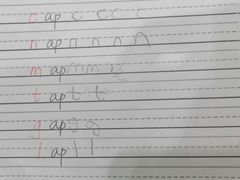 c ap c c c c
n ap n n n n
m ap m m
t ap t t
g ap g g
l ap l l